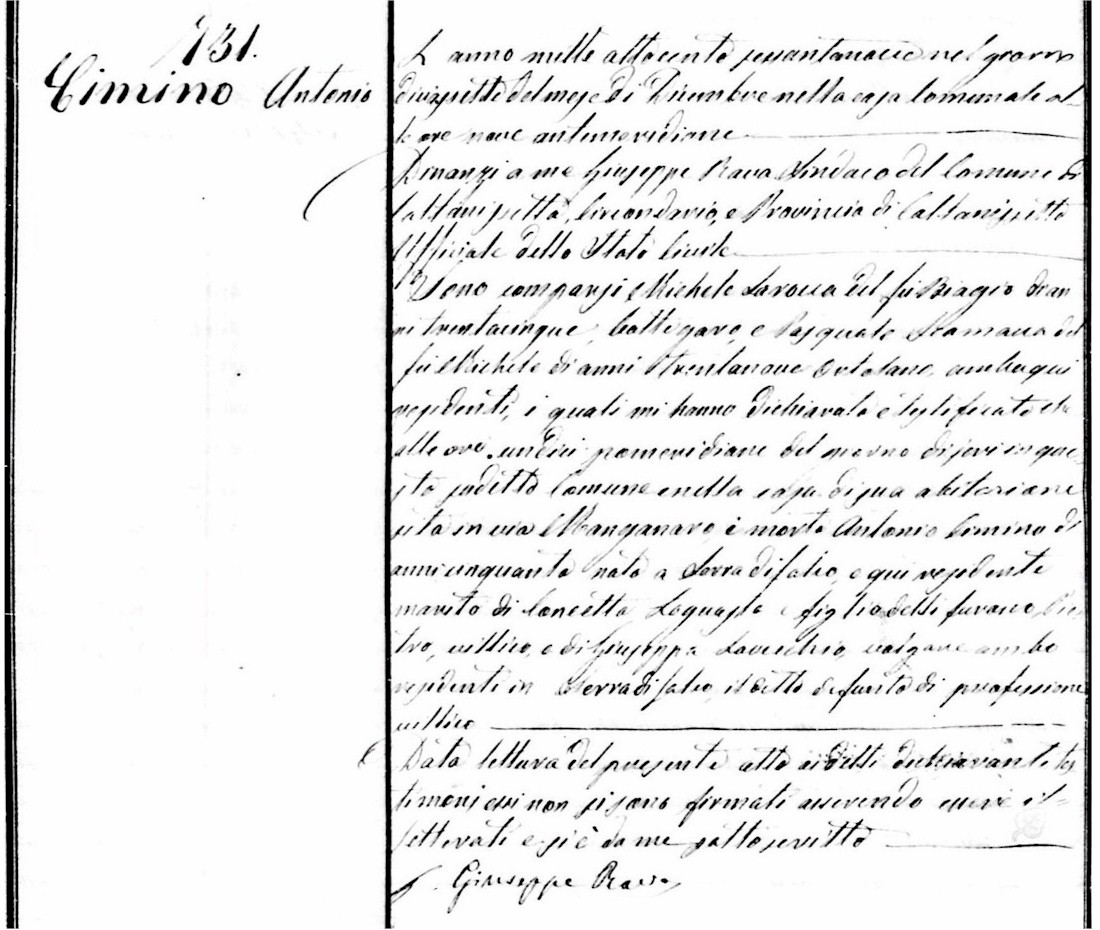 731.
Cimino Antonio
L'anno mille ottocento sessantanove nel giorno
diciassette del mese di Dicembre nella casa Comunale al-
le ore nove antimeridiane
Dinanzi a me Giuseppe Rava Sindaco del Comune di
Caltanissetta, Circondario, e Provincia di Caltanissetta
Ufficiale dello Stato Civile
Sono comparsi Michele Larocca del fu Biagio di an
ni trentacinque, Bottegaro, e Pasquale Scamacca del
fu Michele di anni trentanove Ortolano, ambi qui
residenti, i quali mi hanno dichiarato e testificato che
alle ore undici pomeridiane del giorno di jeri in que-
sto sudetto Comune e nella casa di sua abitazione
sita in via Manganaro è morto Antonio Cimino di
anni cinquanta nato a Serradifalco, e qui residente
marito di Concetta e figlio delli furono Pie
tro, villico, e di Giuseppa Lavecchia, ambo
residenti in Serradifalco, il detto defunto di professione
villico
Data lettura del presente atto ai detti dichiaranti tes
timonj essi non si sono firmati asserendo essere il-
letterati e si è da me sottoscritto
Giuseppe Rava